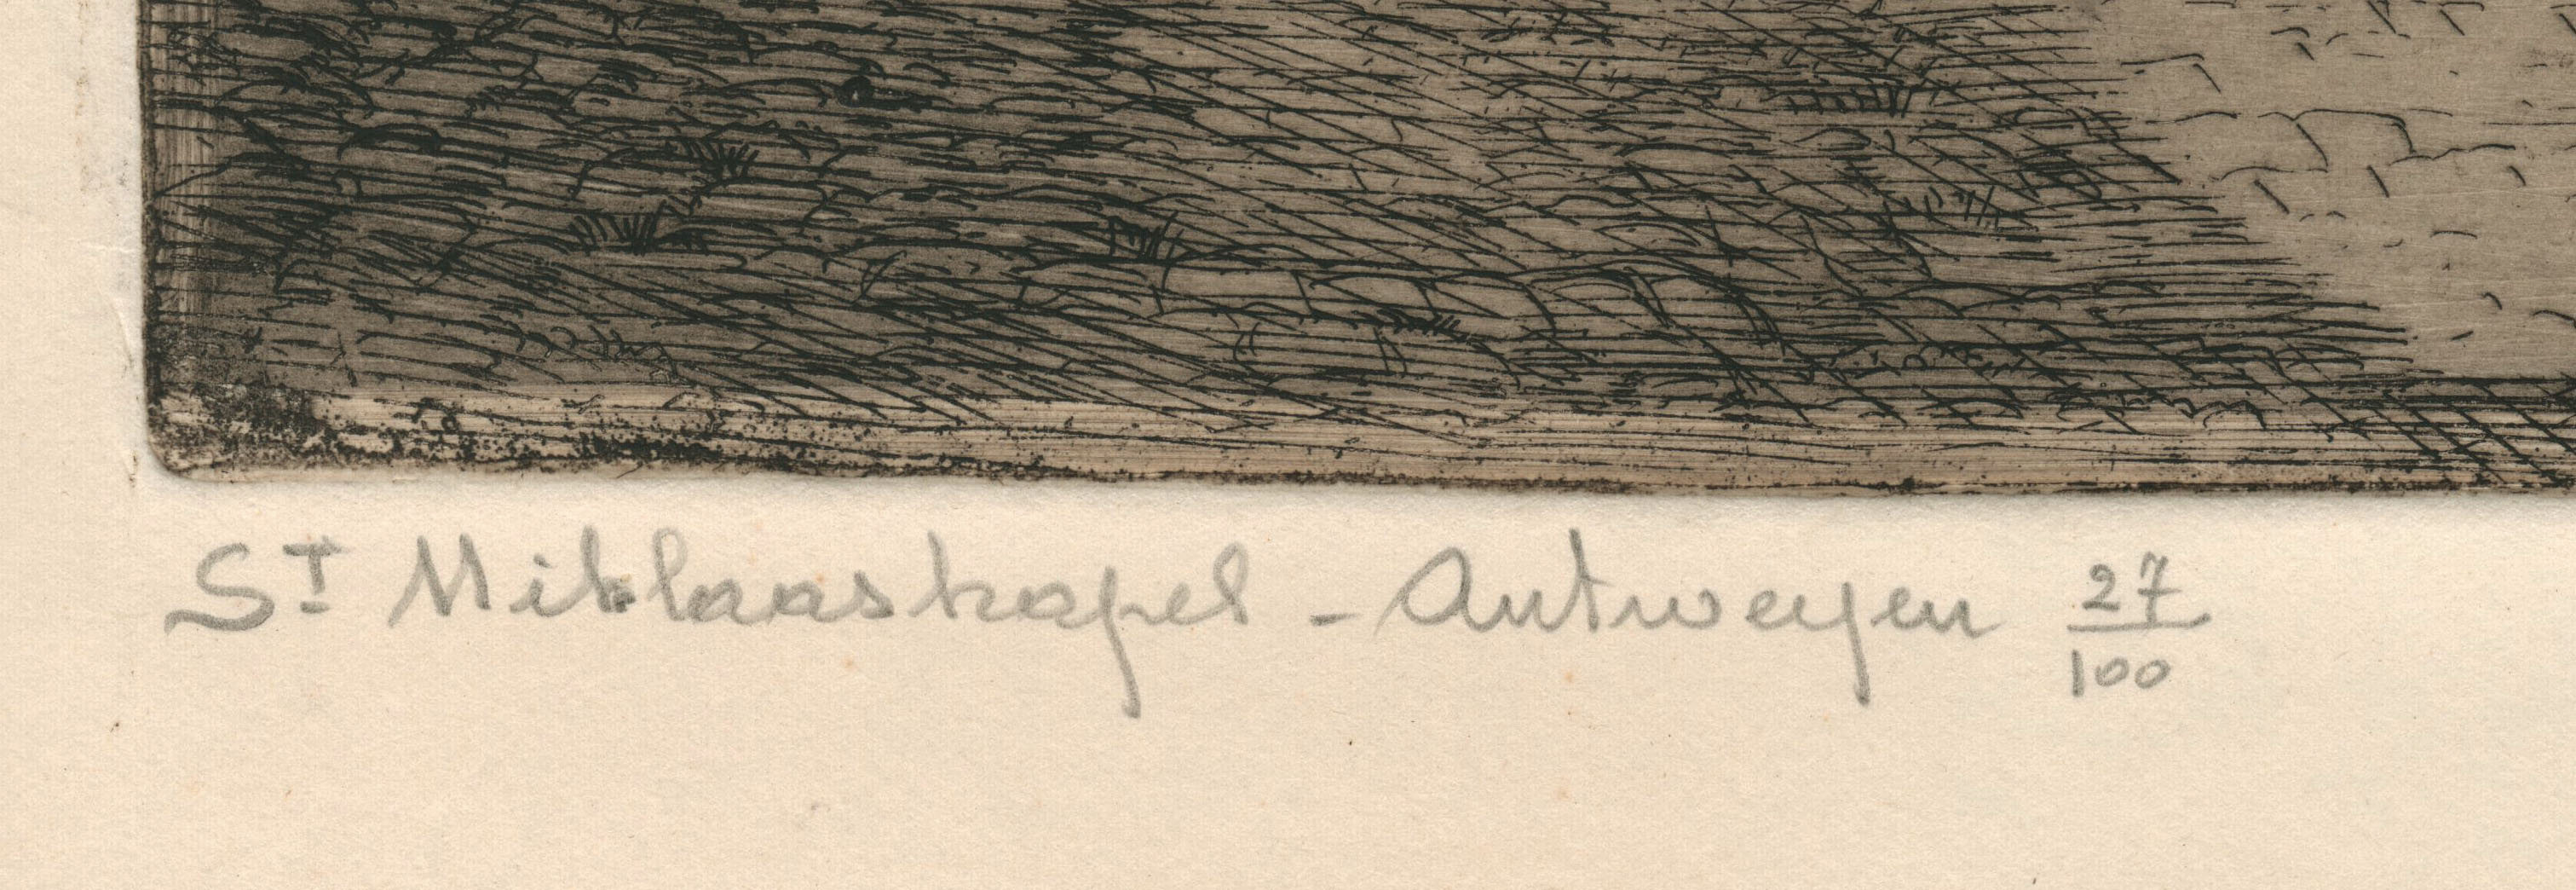 ST Niklaaskapel - Antwerpen 27/100